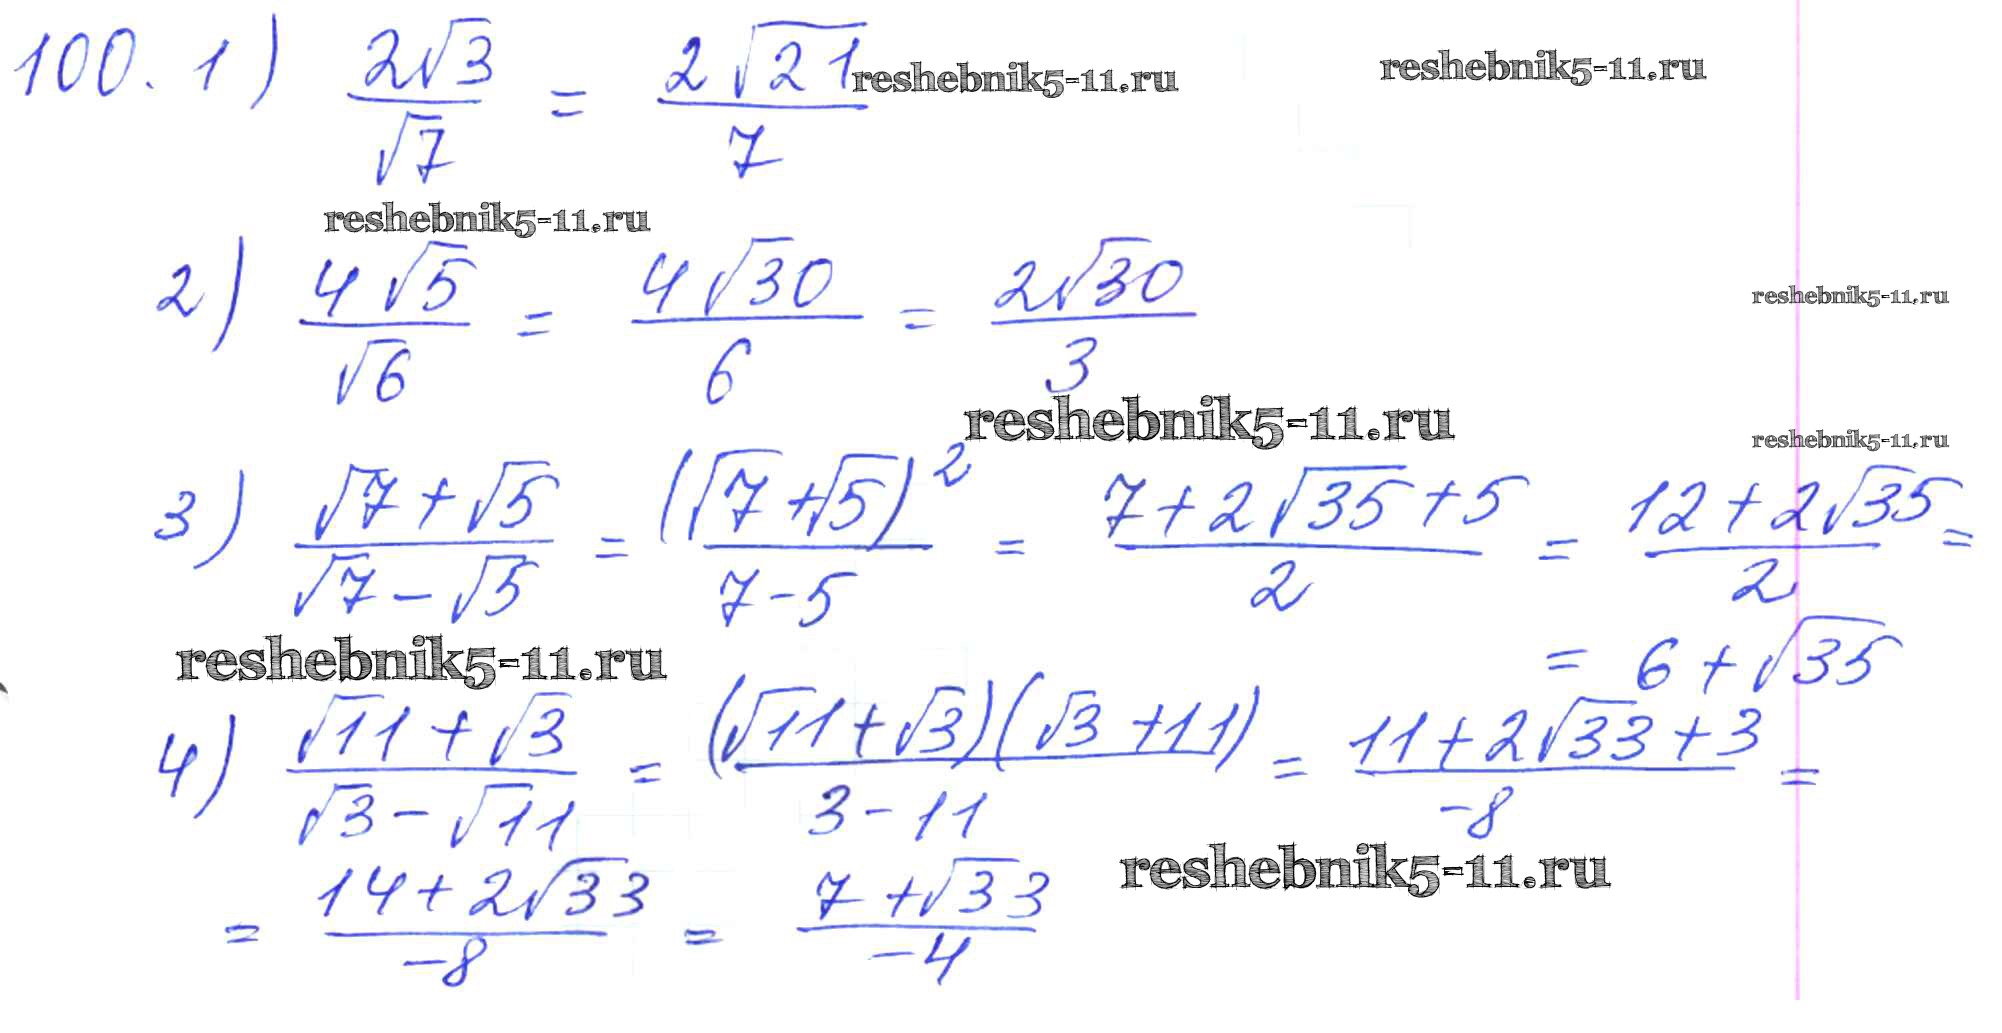 100. 1) 2√3/√7 = 2√21/7
reshebnik5-11.ru
reshebnik5-11.ru
reshebnik5-11.ru
2) 4√5/√6 = 4√30/6 = 2√30/3
reshebnik5-11.ru
reshebnik5-11.ru
reshebnik5-11.ru
3) (√7+√5)/(√7-√5) = (√7+√5)²/(7-5) = (7+2√35+5)/2 = (12+2√35)/2 =
= 6+√35
reshebnik5-11.ru
4) (√11+√3)/(√3-√11) = (√11+√3)(√3+11)/(3-11) = (11+2√33+3)/-8 =
reshebnik5-11.ru
= (14+2√33)/-8 = (7+√33)/-4